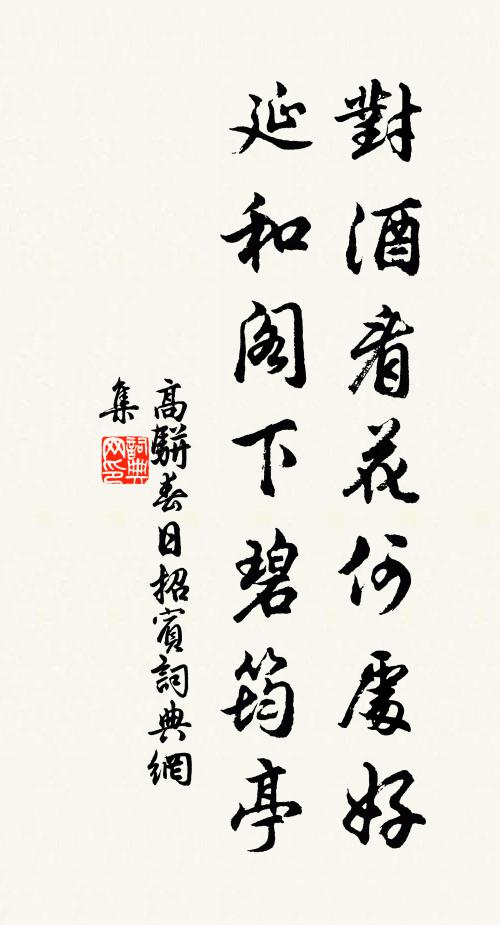 對酒看花何處好
延和阁下碧筠亭
高駢春日招賓詞典網
集
詞典
网印